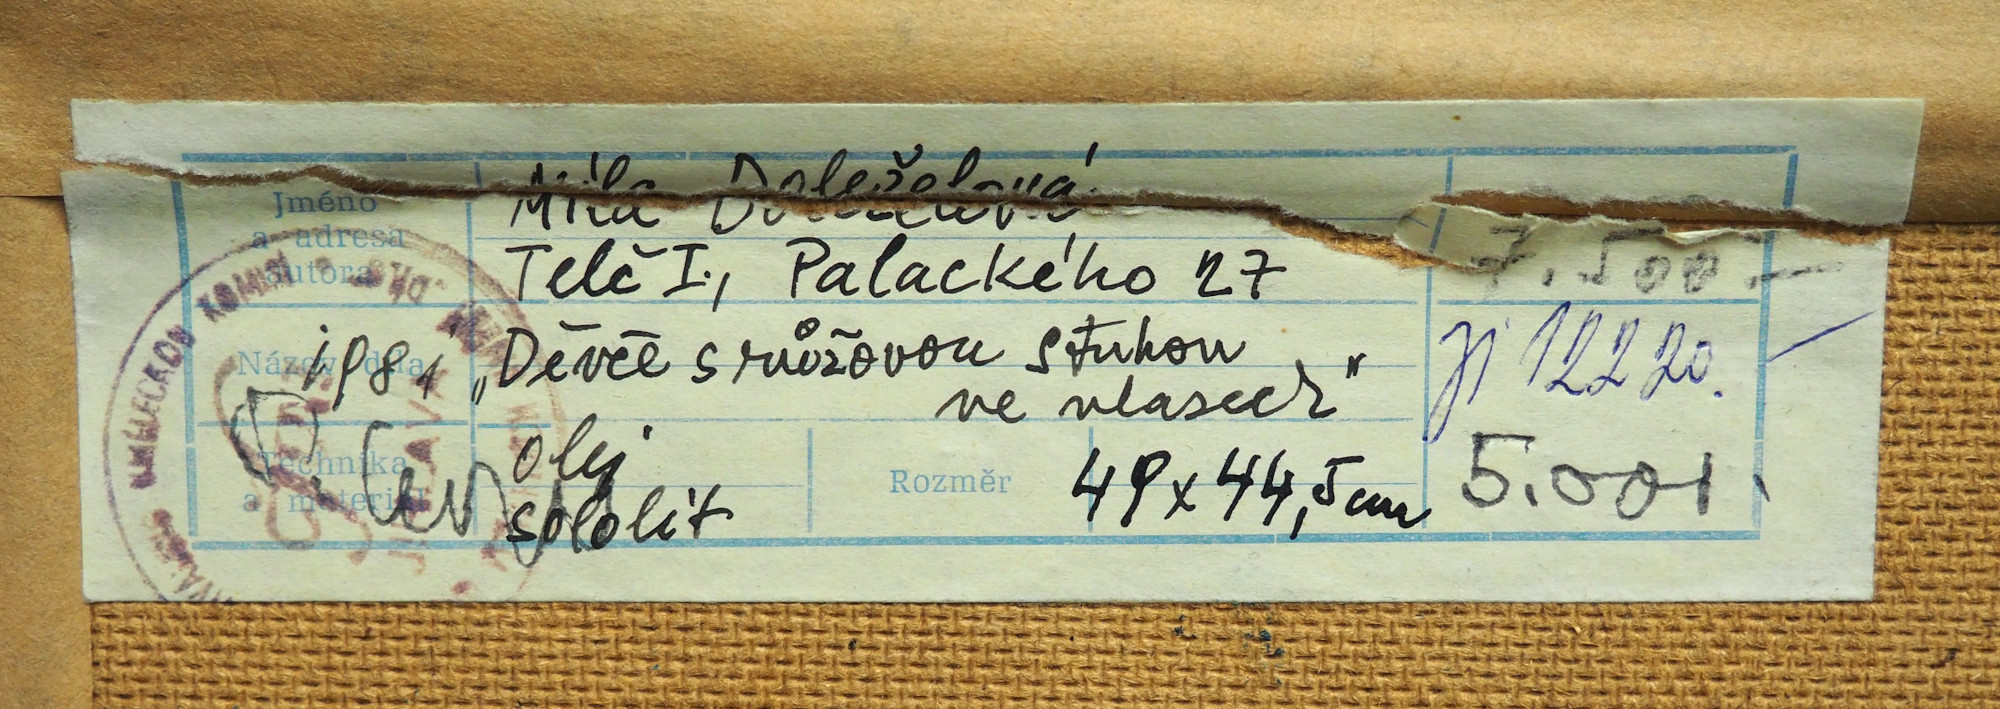 Jméno
a adresa
autora
Míla Doleželová
Telč I., Palackého 27
7.500.-
Název díla
1981 „Děvče s růžovou stuhou
ve vlasech"
Ji 12220.
Technika
a materiál
olej
sololit
Rozměr
49 x 44,5 cm
UMĚLECKOU KOMISÍ
JIHLAVA